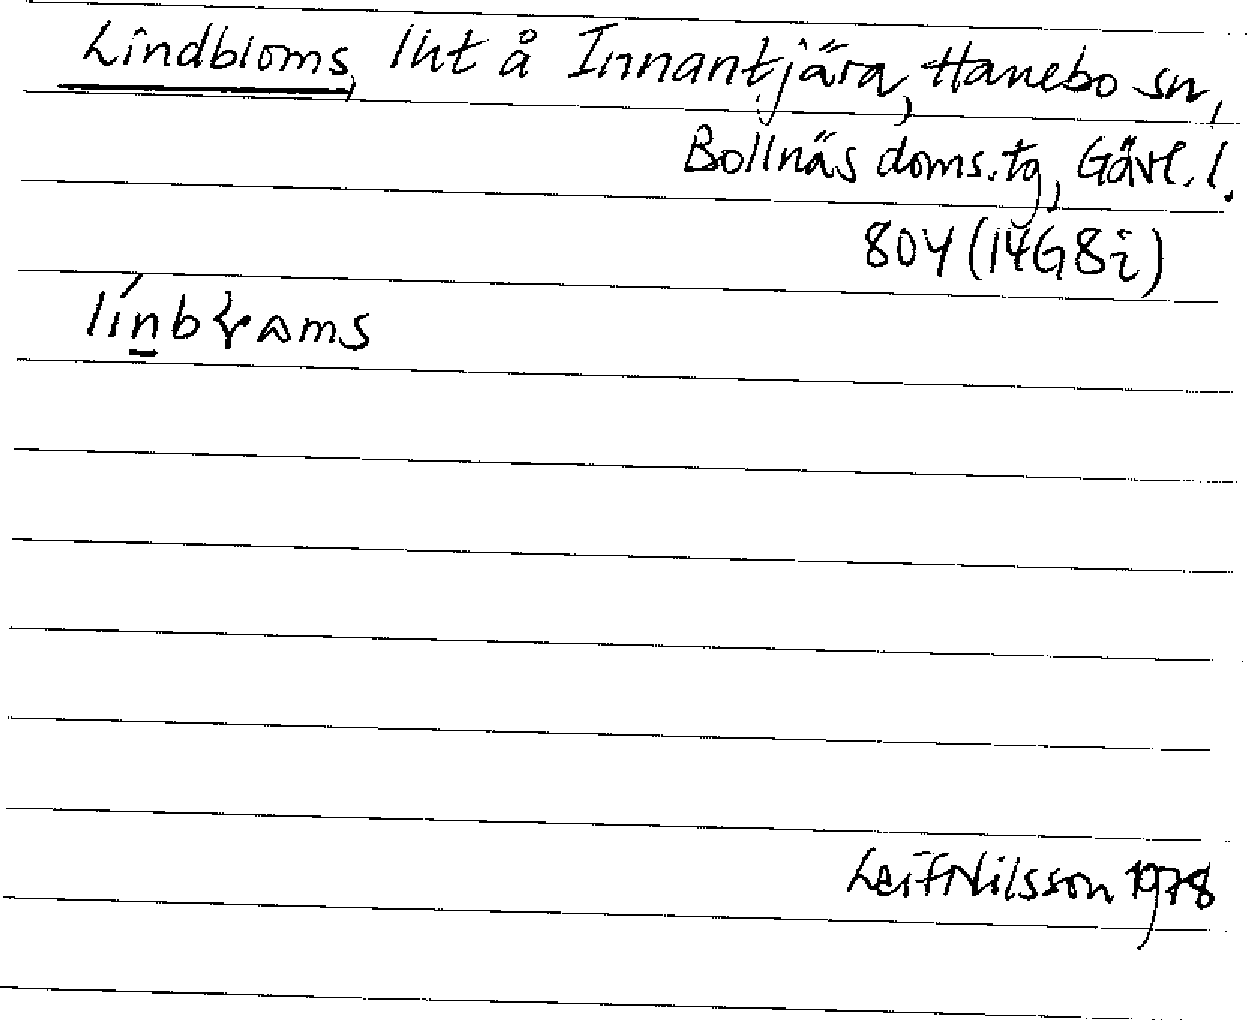 Lindbloms, lht å Innantjära, Hanebo sn,
Bollnäs doms.tg, Gävl. l.
804 (14G8i)
Leif Nilsson 1978